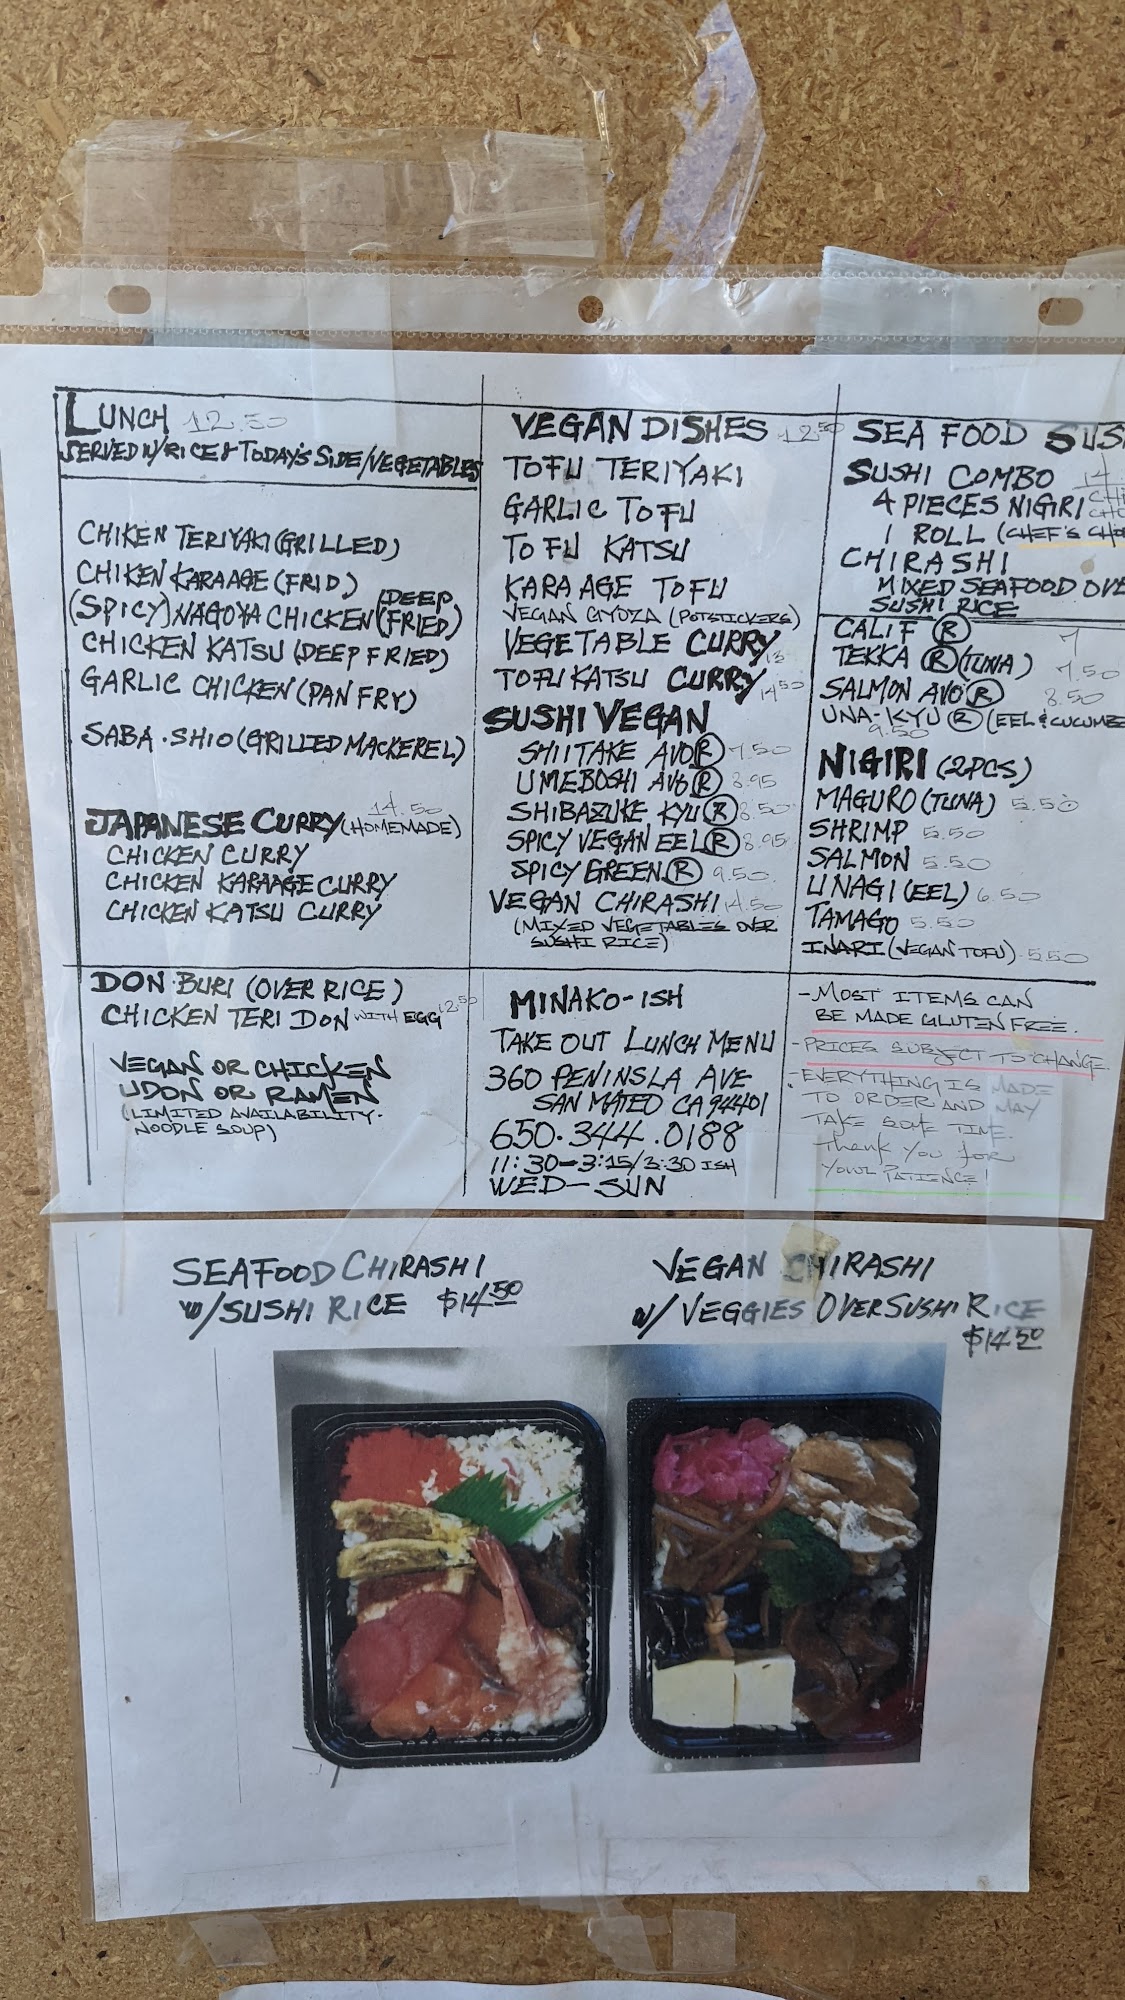 LUNCH 12.50
SERVED W/RICE & TODAY'S SIDE/VEGETABLES
CHIKEN TERIYAKI (GRILLED)
CHIKEN KARAAGE (FRID)
(SPICY) NAGOYA CHICKEN (DEEP FRIED)
CHICKEN KATSU (DEEP FRIED)
GARLIC CHICKEN (PAN FRY)
SABA·SHIO (GRILLED MACKEREL)
14.50
JAPANESE CURRY (HOMEMADE)
CHICKEN CURRY
CHICKEN KARAAGE CURRY
CHICKEN KATSU CURRY
DON·BURI (OVER RICE)
CHICKEN TERI DON WITH EGG 12.50
VEGAN OR CHICKEN
UDON OR RAMEN
(LIMITED AVAILABILITY·
NOODLE SOUP)
VEGAN DISHES 12.50
TOFU TERIYAKI
GARLIC TOFU
TOFU KATSU
KARAAGE TOFU
VEGAN GYOZA (POTSTICKERS)
VEGETABLE CURRY 13
TOFU KATSU CURRY 14.50
SUSHI VEGAN
SHIITAKE AVO Ⓡ 7.50
UMEBOSHI AVO Ⓡ 8.95
SHIBAZUKE KYU Ⓡ 8.50
SPICY VEGAN EEL Ⓡ 8.95
SPICY GREEN Ⓡ 9.50
VEGAN CHIRASHI 14.50
(MIXED VEGETABLES OVER
SUSHI RICE)
MINAKO-ISH
TAKE OUT LUNCH MENU
360 PENINSLA AVE
SAN MATEO CA 94401
650·344·0188
11:30-3:15/3:30 ISH
WED-SUN
SEA FOOD SUS
SUSHI COMBO 14
4 PIECES NIGIRI
1 ROLL (CHEF'S CHO
CHIRASHI
MIXED SEAFOOD OVE
SUSHI RICE
CALIF Ⓡ 7
TEKKA Ⓡ (TUNA) 7.50
SALMON AVO Ⓡ 8.50
UNA-KYU Ⓡ (EEL & CUCUMBE
9.50
NIGIRI (2PCS)
MAGURO (TUNA) 5.50
SHRIMP 5.50
SALMON 5.50
UNAGI (EEL) 6.50
TAMAGO 5.50
INARI (VEGAN TOFU) 5.50
-MOST ITEMS CAN
BE MADE GLUTEN FREE.
-PRICES SUBJECT TO CHANGE.
-EVERYTHING IS MADE
TO ORDER AND MAY
TAKE SOME TIME.
Thank You for
YOUR PATIENCE!
SEAFOOD CHIRASHI
W/SUSHI RICE $14.50
VEGAN CHIRASHI
W/VEGGIES OVER SUSHI RICE
$14.50